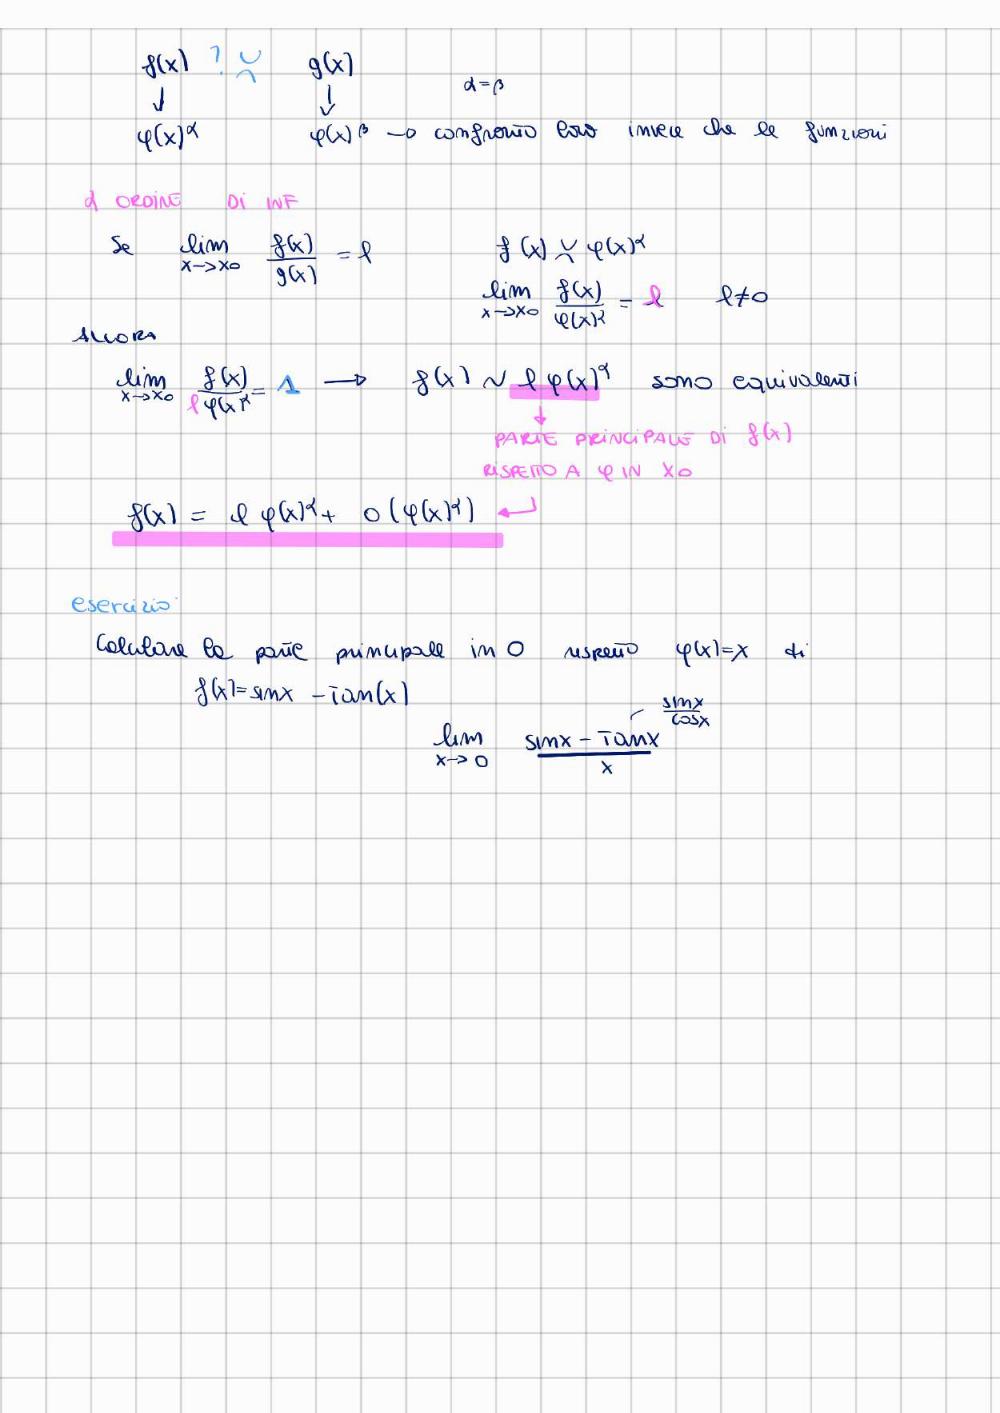 f(x) ? ≍ g(x)
↓ ↓ α=β
φ(x)^α φ(x)^β → confronto loro invece che le funzioni
α ORDINE DI INF
Se lim x→x0 f(x)/g(x) = l f(x) ≍ φ(x)^α
lim x→x0 f(x)/φ(x)^α = l l≠0
ALLORA
lim x→x0 f(x)/l φ(x)^α = 1 → f(x) ~ l φ(x)^α sono equivalenti
↓
PARTE PRINCIPALE DI f(x)
RISPETTO A φ IN X0
f(x) = l φ(x)^α + o(φ(x)^α) ←
esercizio
Calcolare la parte principale in 0 rispetto φ(x)=x di
f(x)=sinx - Tan(x)
sinx/cosx
lim x→0 sinx - Tanx/x